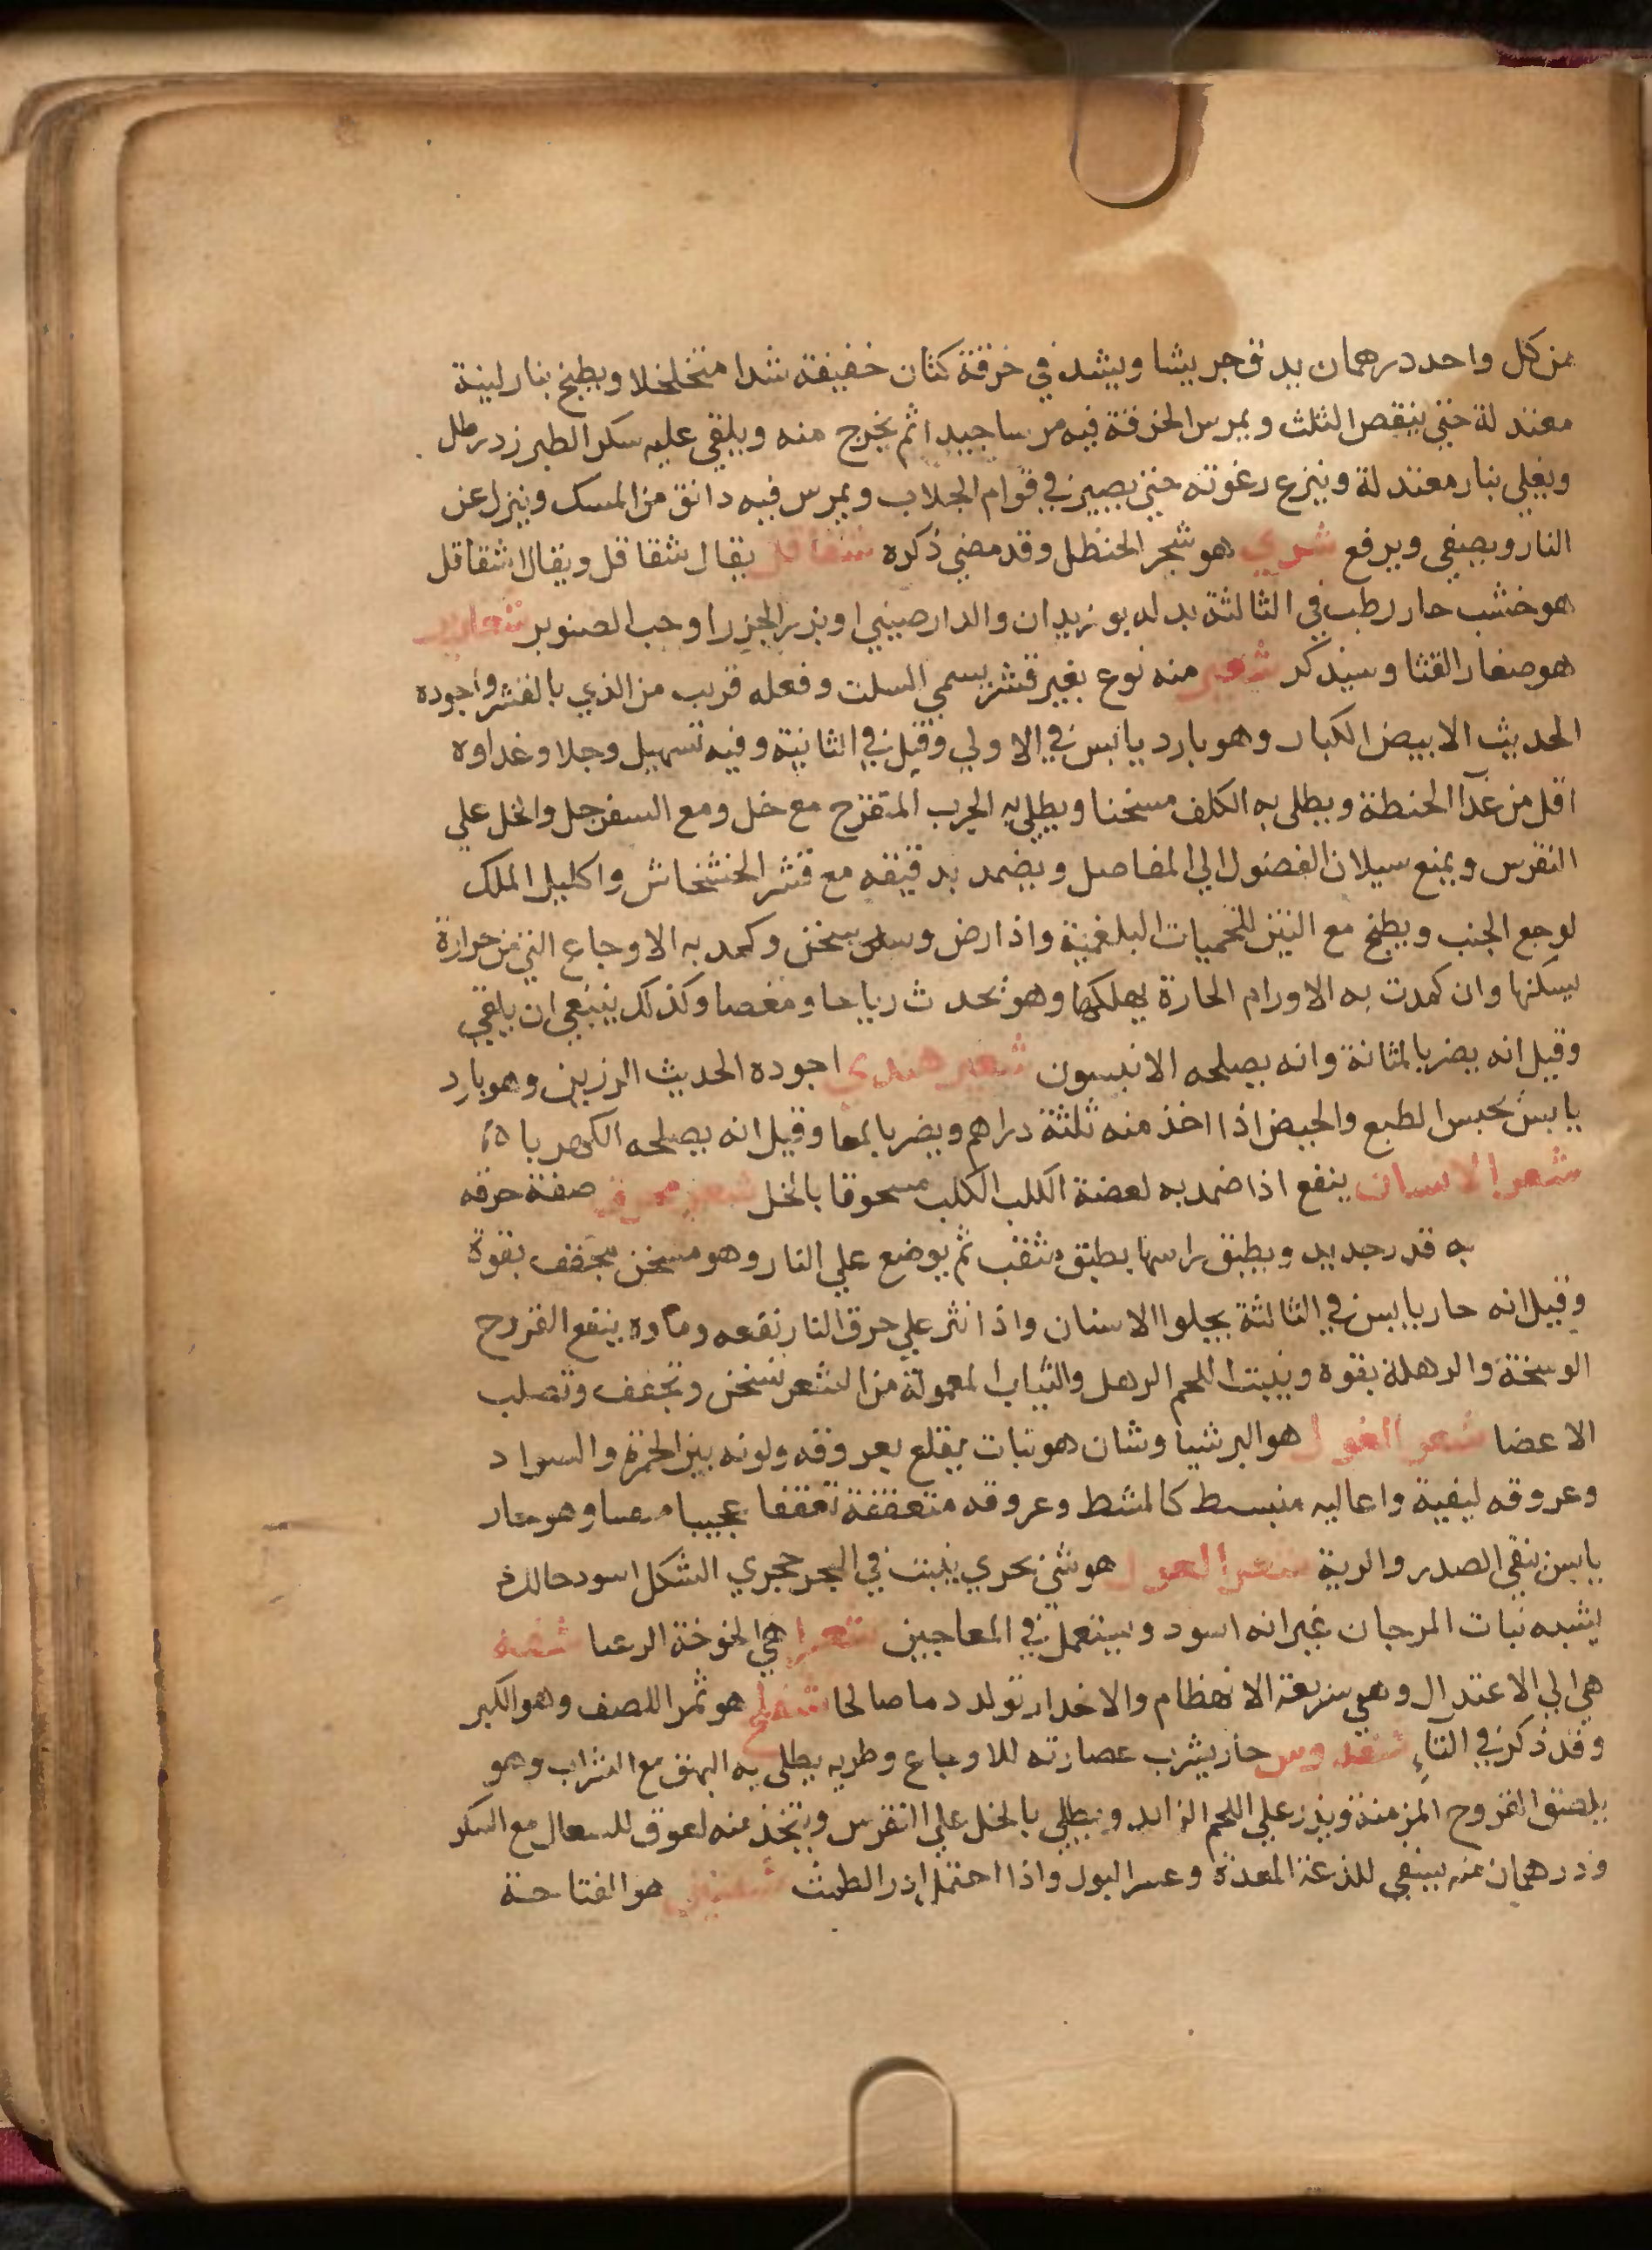 من كل واحد درهمان يدق جريشا ويشد في خرقة كتان خفيفة شدا متخلخلا ويطبخ بنار لينة
معتدلة حتي ينقص الثلث ويمرس الخرقة فيه مرسا جيدا ثم يخرج منه ويلقي عليه سكر الطبرزد رطل
ويغلي بنار معتدلة وينزع رغوته حتي يصير في قوام الجلاب ويمرس فيه دانق من المسك وينزل عن
النار ويصفي ويرفع شري هو شجر الحنظل وقد مضي ذكره شقاقل يقال شقاقل ويقال اشقاقل
هو خشب حار رطب في الثالثة بدله بوزيدان والدارصيني او بزر الجزر او حب الصنوبر شعارير
هو صغار القثا وسيذكر شعير منه نوع بغير قشر يسمي السلت وفعله قريب من الذي بالقشر واجوده
الحديث الابيض الكبار وهو بارد يابس في الاولي وقيل في الثانية وفيه تسهيل وجلا وغداوه
اقل من غدآ الحنطة ويطلي به الكلف مسخنا ويطلي به الجرب المتقرح مع خل ومع السفرجل والخل علي
النقرس ويمنع سيلان الفضول الي المفاصل ويضمد بدقيقه مع قشر الخشخاش واكليل الملك
لوجع الجنب ويطبخ مع التين للحميات البلغمية واذا رض وسلق سخن وكمد به الاوجاع التي من حرارة
يسكنها وان كمدت به الاورام الحارة يهلكها وهو يحدث رياحا ومغصا وكذلك ينبغي ان يلقي
وقيل انه يضر بالمثانة وانه يصلحه الانيسون شعير هندي اجوده الحديث الرزين وهو بارد
يابس يحبس الطبع والحيض اذا اخذ منه ثلثة دراهم ويضر بالمعا وقيل انه يصلحه الكهربا
شعر الانسان ينفع اذا ضمد به لعضة الكلب الكلب مسحوقا بالخل شعر محرق صفة حرقه
به قدر جديد ويطبق راسها بطبق مثقب ثم يوضع علي النار وهو مسخن مجفف بقوة
وقيل انه حار يابس في الثالثة يجلوا الاسنان واذا نثر علي حرق النار نفعه وماوه ينفع القروح
الوسخة والرهلة بقوة وينبت اللحم الرهل والثياب المعمولة من الشعر تسخن وتجفف وتصلب
الاعضا شعر الغول هو البرشياوشان هو نبات يقلع بعروقه ولونه بين الحمرة والسواد
وعروقه ليفية واعاليه منبسط كالمشط وعروقه متعقفة تعقفا عجيبا وهو حار
يابس ينقي الصدر والرية شعر الغول هو شي بحري ينبت في البحر حجري الشكل اسود حالك
يشبه نبات المرجان غير انه اسود ويستعمل في المعاجين شعرا هي الخوخة الزعبا شفنه
هي الي الاعتدال وهي سريعة الانهظام والانحدار تولد دما صالحا شفلح هو ثمر اللصف وهو الكبر
وقد ذكر في التآء حار يشرب عصارته للاوجاع وطريه يطلي به البهق مع الشراب وهو
يلصق القروح المزمنة ويذر علي اللحم الزايد ويطلي بالخل علي النقرس ويتخذ منه لعوق للسعال مع السكر
ودرهمان منه يسقي للذعة المعدة وعسر البول واذا احتمل ادر الطمث شفنين هو الفتاحة